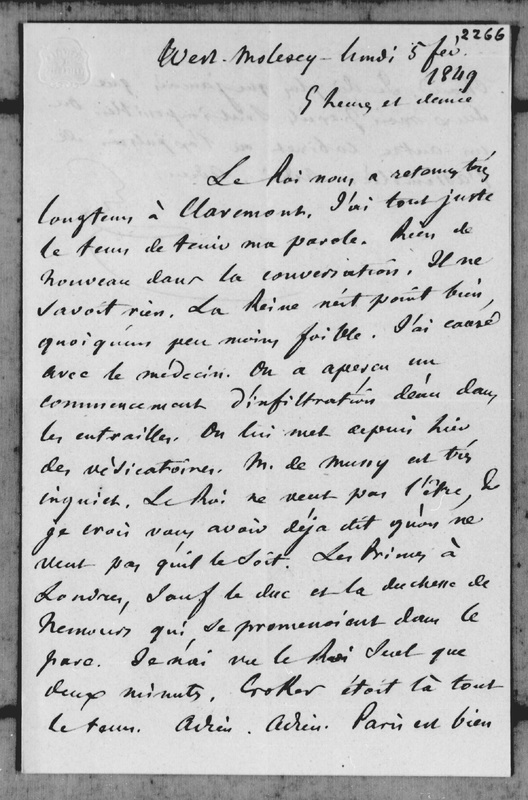 2266
West-Molesey - lundi 5 fév.
1849
5 heures et demie
Le Roi nous a retenus très
longtems à Claremont. J'ai tout juste
le tems de tenir ma parole. Rien de
nouveau dans la conversation. Il ne
savoit rien. La Reine n'est point bien,
quoiqu'un peu moins foible. J'ai causé
avec le médecin. On a aperçu un
commencement d'infiltration d'eau dans
les entrailles. On lui met depuis hier
des vésicatoires. M. de Mussy est très
inquiet. Le Roi ne veut pas l'être, &
je crois vous avoir déja dit qu'on ne
veut pas qu'il le soit. Les Princes à
Londres, sauf le duc et la duchesse de
Nemours qui se promenoient dans le
parc. Je n'ai vu le Roi seul que
deux minutes. Croker étoit là tout
le tems. Adieu. Adieu. Paris est bien